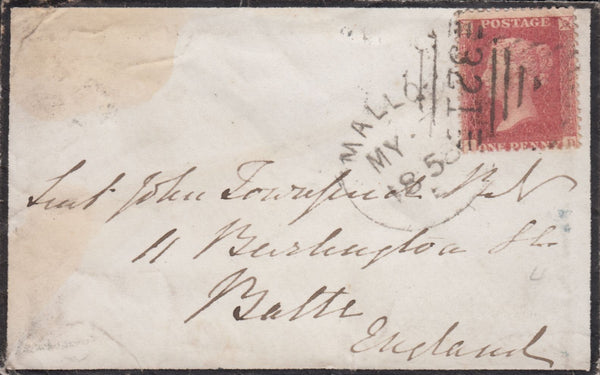 POSTAGE
ONE PENNY
MALLO
MY
1858
Lieut John Townsend R.N
11 Burlington St
Bath
England